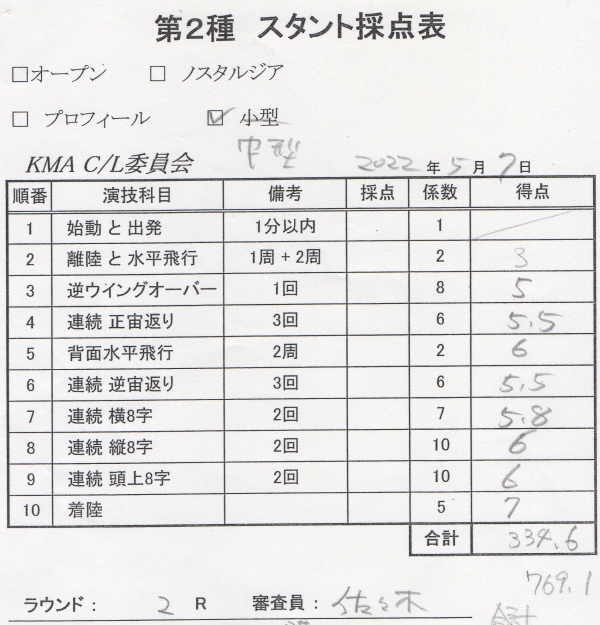 第2種 スタント採点表
□オープン □ ノスタルジア
□ プロフィール ☑ 小型
中型
KMA C/L委員会 2022 年 5 月 7 日
順番 演技科目 備考 採点 係数 得点
1 始動 と 出発 1分以内 1
2 離陸 と 水平飛行 1周 + 2周 2 3
3 逆ウイングオーバー 1回 8 5
4 連続 正宙返り 3回 6 5.5
5 背面水平飛行 2周 2 6
6 連続 逆宙返り 3回 6 5.5
7 連続 横8字 2回 7 5.8
8 連続 縦8字 2回 10 6
9 連続 頭上8字 2回 10 6
10 着陸 5 7
合計 334.6
769.1
ラウンド : 2 R 審査員 : 佐々木
合計